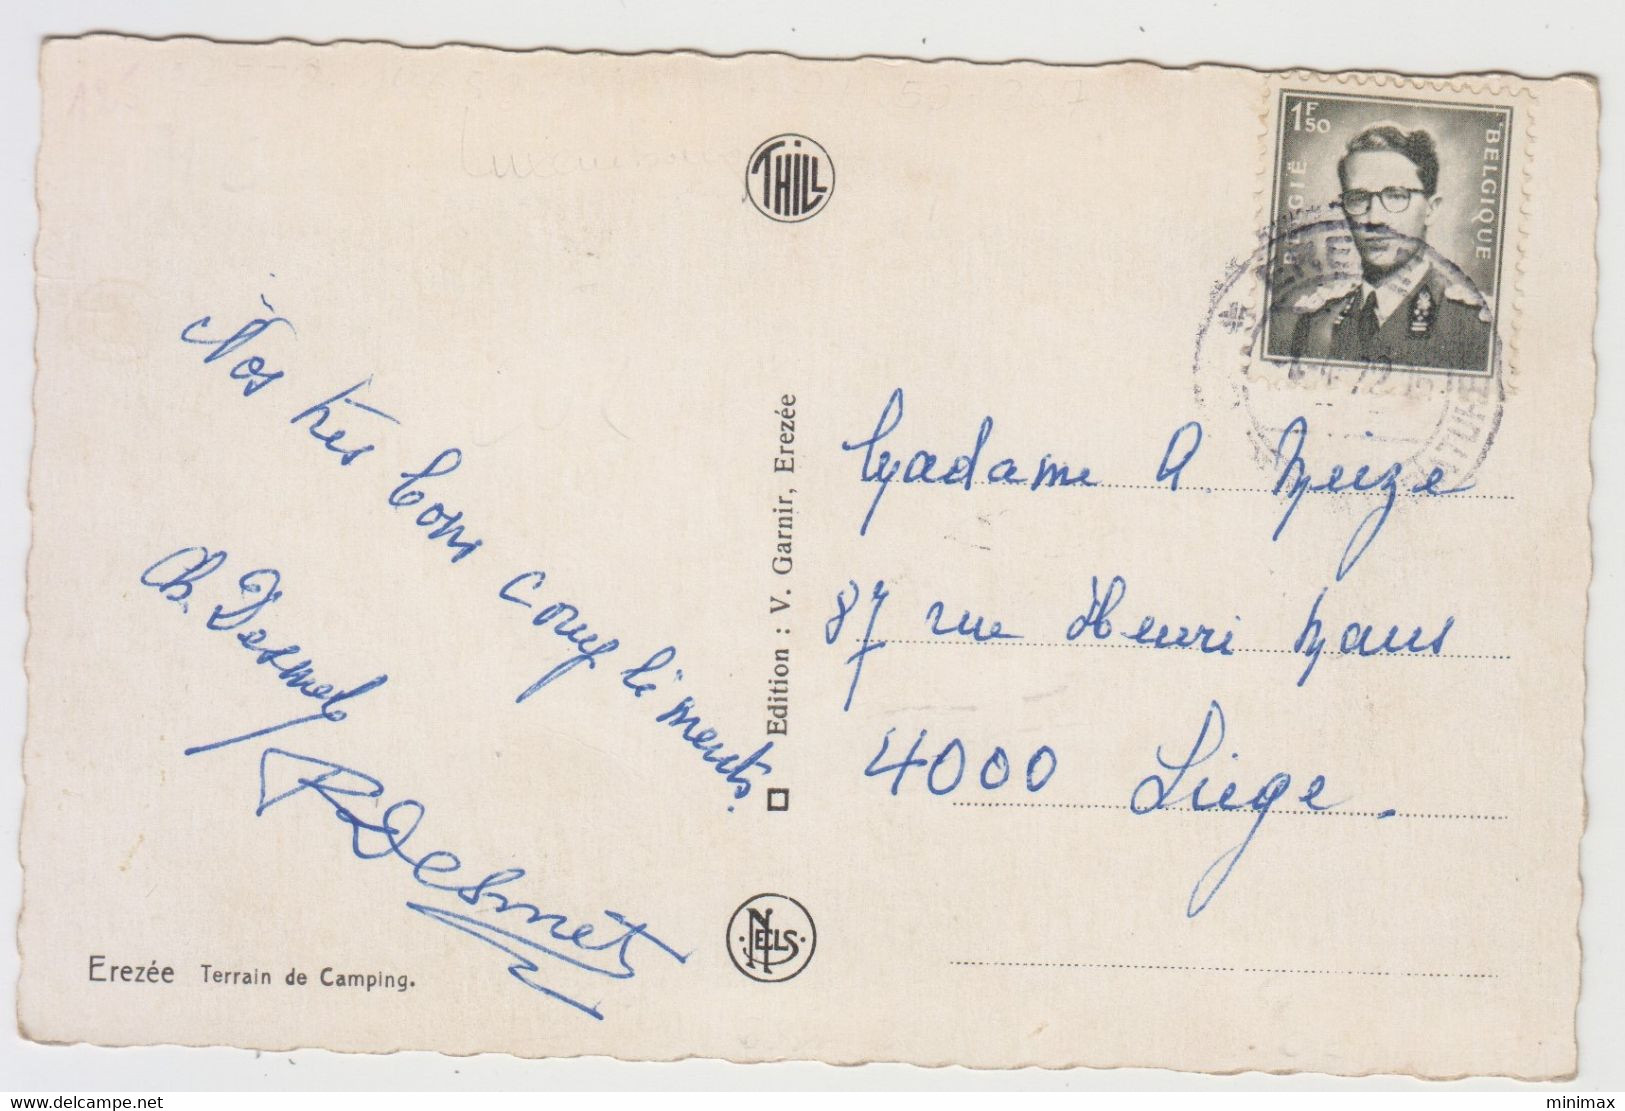 THILL
1F50
BELGIQUE
BELGIË
72
Nos très bons compliments.
Ch. Desmet
R Desmet
Edition : V. Garnir, Erezée
NELS
Madame A.
87 rue Henri Maus
4000 Liège.
Erezée Terrain de Camping.
www.delcampe.net
minimax